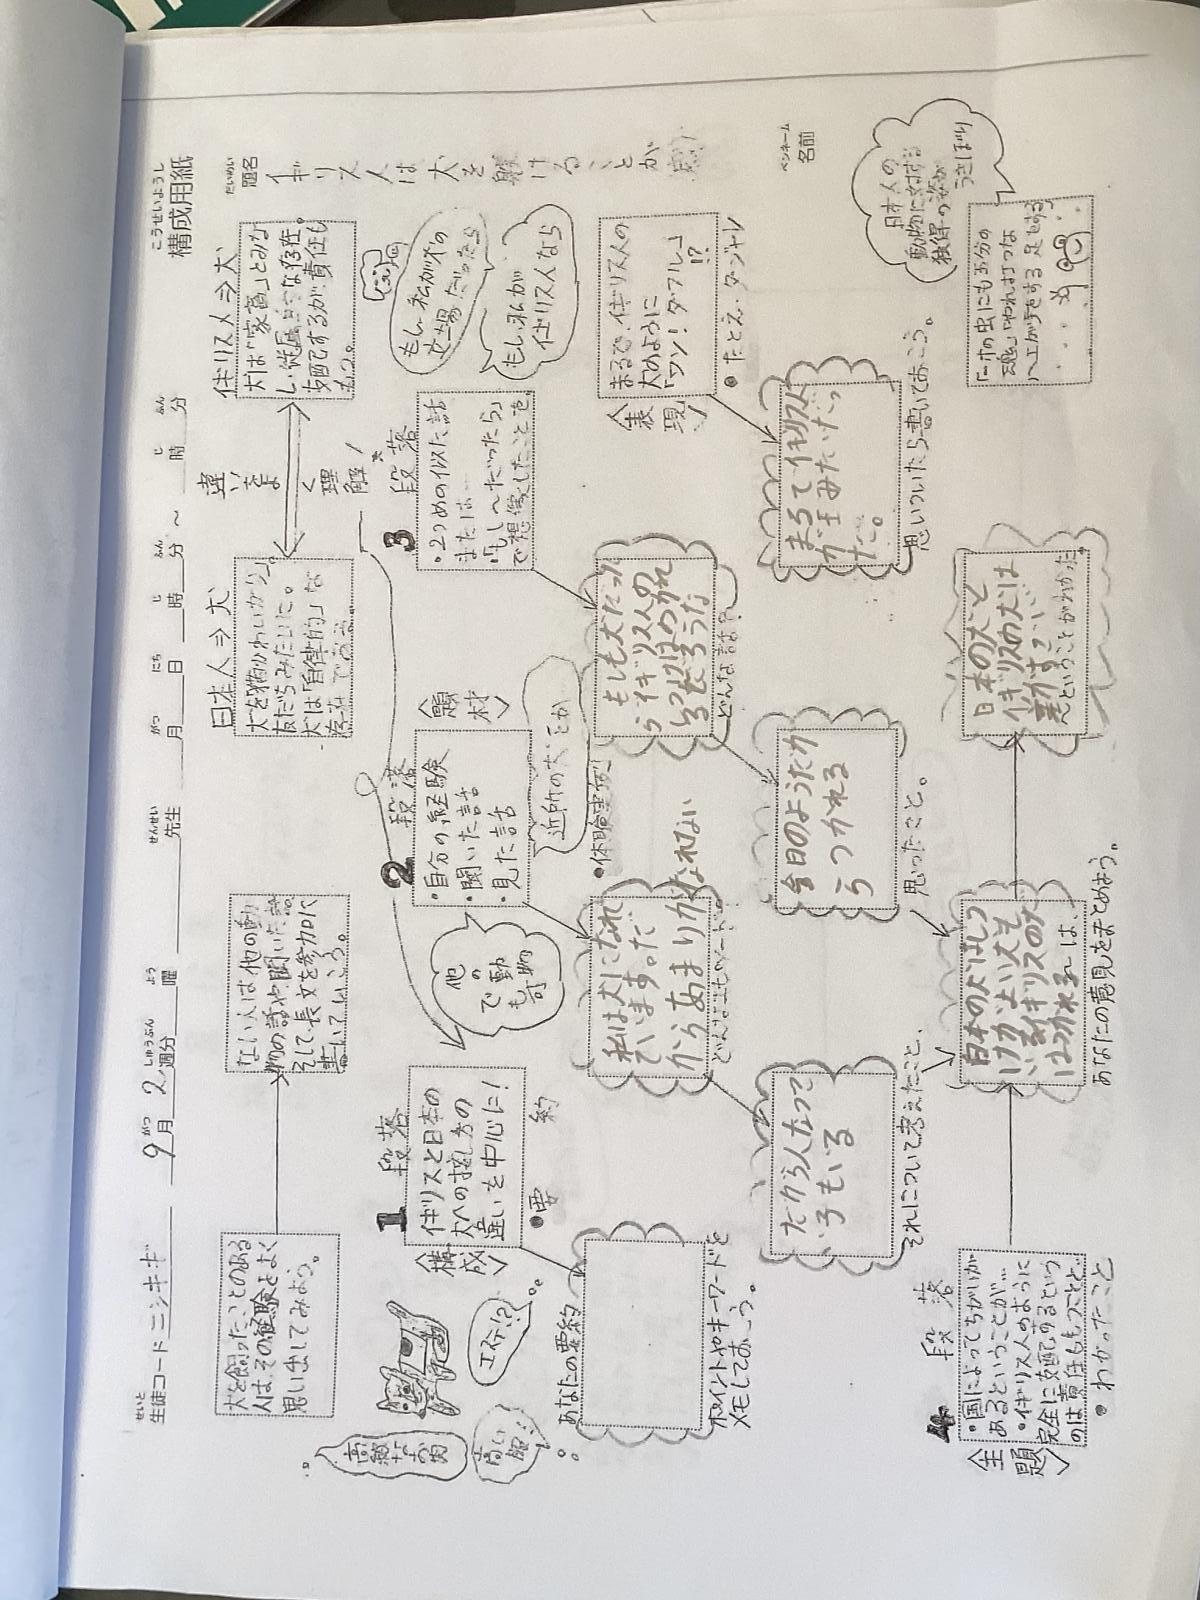 こうせいようし
構成用紙
せいと
生徒コード ニシキギ
9月 2週分
がつ しゅうぶん
曜 よう
先生 せんせい
月 がつ 日 にち
時 じ 分 ふん ～ 時 じ 分 ふん
だいめい
題名
イギリス人は犬を躾けることが
ペンネーム
名前
犬を飼ったことのある
人は、その経験をよく
思い出してみよう。
ない人は、他の動
物の話や、聞いた話
そして、長文を参加に
書いていこう。
日本人⇒犬
犬を猫かわいがり。
友だちみたいに。
犬は「自律的」な
存在である。
違いをよ
く
理
解!
イギリス人⇒犬
犬は「家畜」とみな
し、従属的な存在。
支配するが、責任も
もつ。
高級なお肉
高い服!
エステ!?
1 段落
イギリスと日本の
犬への接し方の
違いを中心に!
〈構成〉
●要約
他の動物
でも可
2 段落
・自分の経験
・聞いた話
・見た話
〈題材〉
近所の犬とか
●体験実例
3 段落
・2つめの似た話
または…
・「もし～だったら」
で想像したことを。
もし、私が犬の
立場だったら
もし、私が
イギリス人なら
〈表現〉
まるで、イギリス人の
犬のように
「ワン!ダフル」
!?
●たとえ・ダジャレ
あなたの要約
ポイントやキーワードを
メモしておこう。
私は犬になれ
ています。だ
からあまりか
なれない
だから人なつこ
い子もいる
それについて考えたこと、
もしも犬だった
らイギリスの
しつけはつかれ
どんな話?
全日のようだか
らつかれる
思ったこと。
まるでイギリス人
が王みたいだっ
た。
思いついたら書いておこう。
4 段落
〈主題〉
・国によってちがいが
あるということが…
・イギリス人のように
完全に支配するという
のは責任ももつことと。
●わかったこと
日本の犬はしつ
けがよい犬もい
るイギリスの犬
はつかれる
あなたの意見をまとめよう。
日本の犬と
イギリスの犬は
差がすごい
んということがわかった
日本人の
動物に対する
独得の姿が
うきぼり
「一寸の虫にも五分の
魂」「やれ打つな
ハエが手をする足をする」